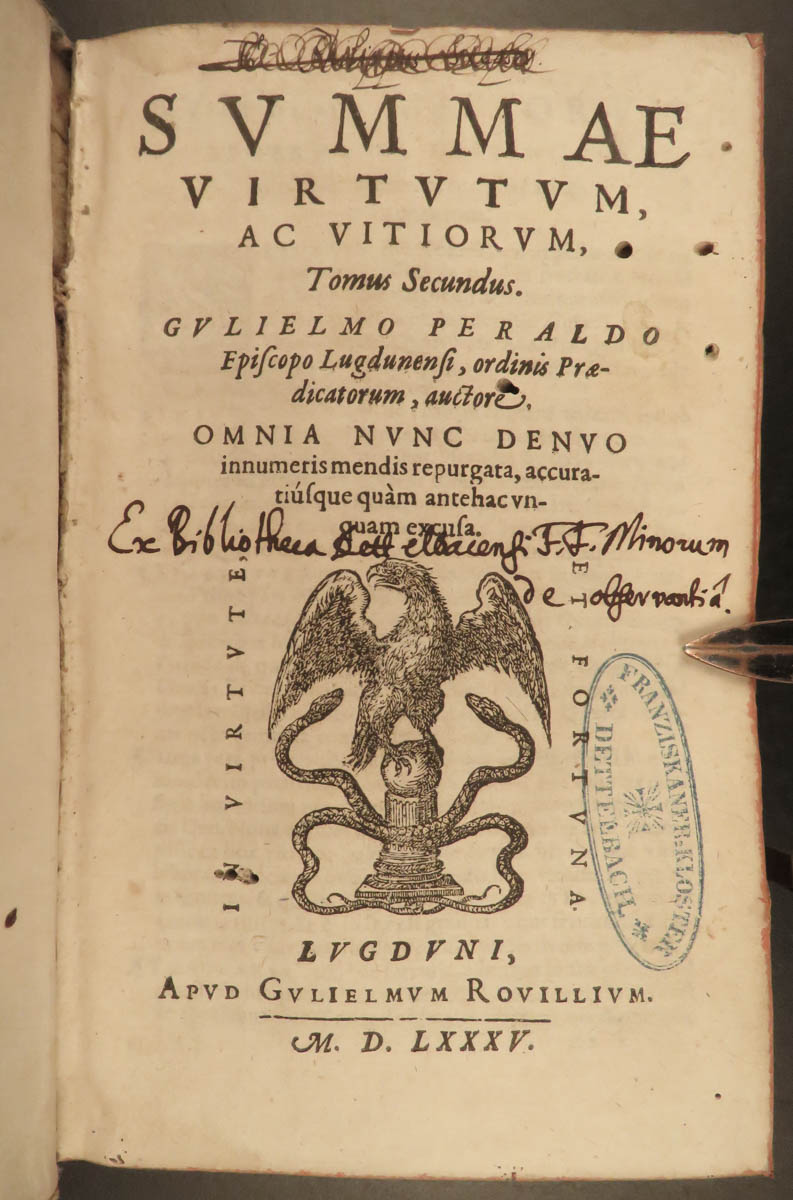 SVMMAE
VIRTVTVM,
AC VITIORVM,
Tomus Secundus.
GVLIELMO PERALDO
Epiſcopo Lugdunenſi, ordinis Præ-
dicatorum, auctore.
OMNIA NVNC DENVO
innumeris mendis repurgata, accura-
tiúſque quàm antehac vn-
quam excuſa.
Ex Bibliotheca Dettelbacensi F.F. Minorum
de observantiâ.
IN VIRTVTE,
ET FORTVNA.
FRANZISKANER=KLOSTER
DETTELBACH.
LVGDVNI,
APVD GVLIELMVM ROVILLIVM.
M. D. LXXXV.